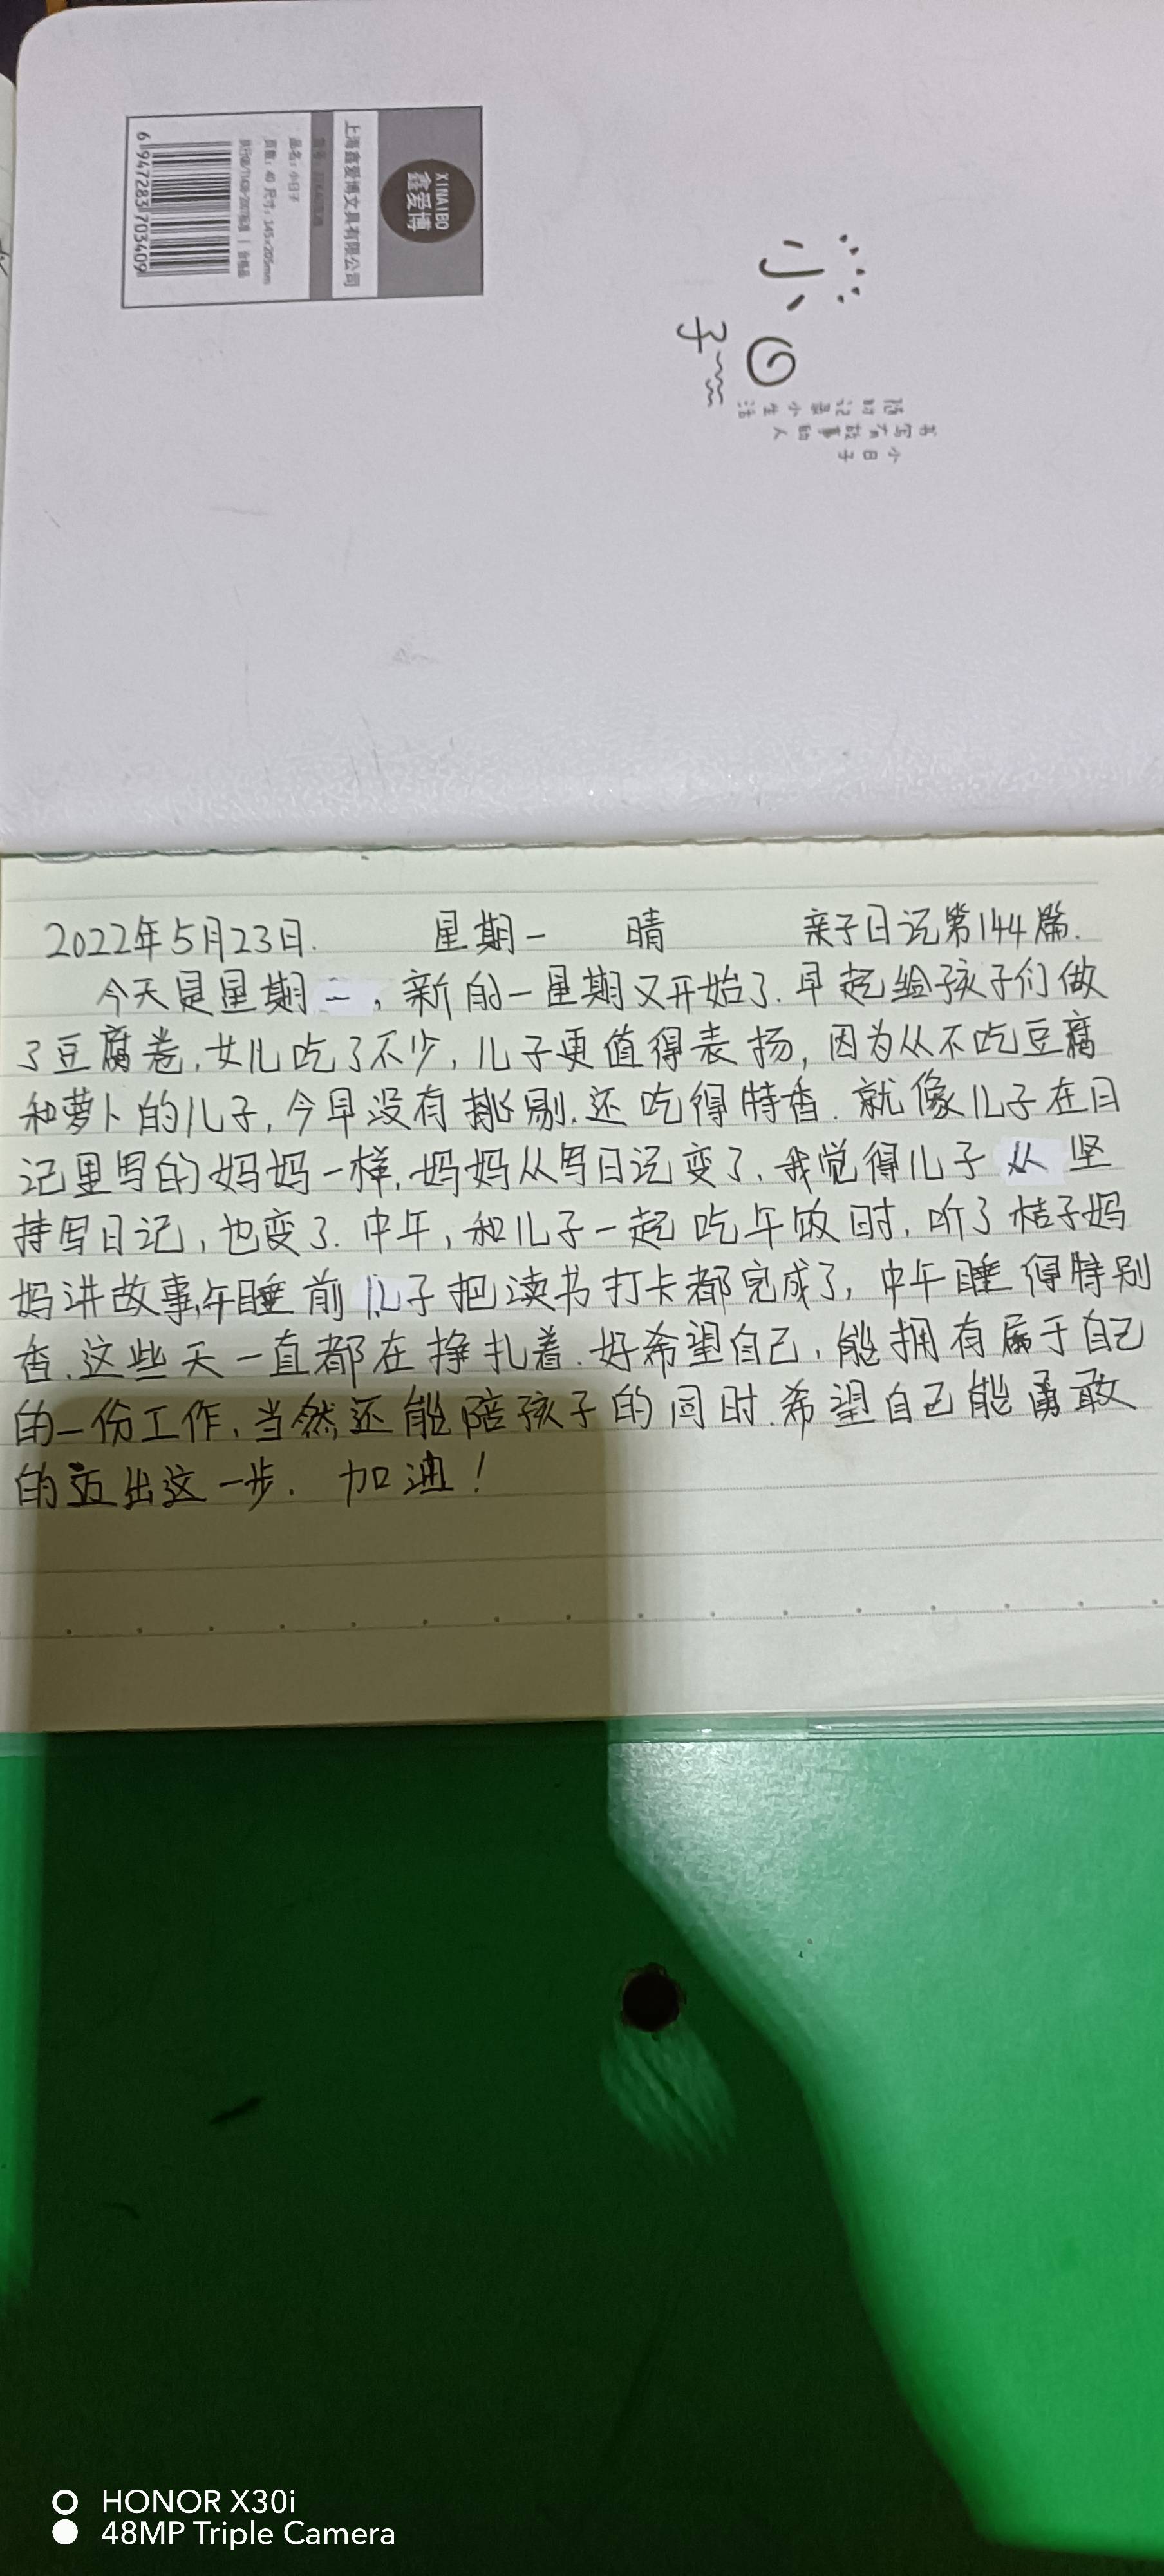 XINAIBO
鑫爱博
上海鑫爱博文具有限公司
品名：小日子
页数：40 尺寸：145x205mm
6 947283 703409
小日子
随时记录小生活
书写有故事的人
小日子
2022年5月23日. 星期一 晴 亲子日记第144篇.
今天是星期一，新的一星期又开始了.早起给孩子们做
了豆腐卷,女儿吃了不少,儿子更值得表扬,因为从不吃豆腐
和萝卜的儿子,今早没有挑剔.还吃得特香.就像儿子在日
记里写的妈妈一样,妈妈从写日记变了,我觉得儿子从坚
持写日记,也变了.中午,和儿子一起吃午饭时,听了桔子妈
妈讲故事,午睡前儿子把读书打卡都完成了,中午睡得特别
香.这些天一直都在挣扎着.好希望自己,能拥有属于自己
的一份工作,当然还能陪孩子的同时.希望自己能勇敢
的迈出这一步. 加油!
HONOR X30i
48MP Triple Camera